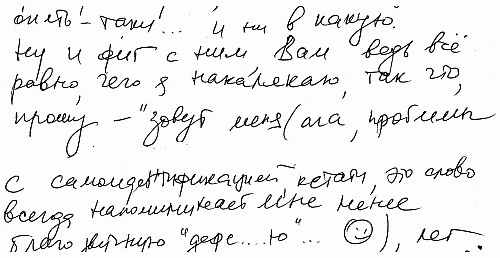 опять-таки!... и ни в какую.
Ну и фиг с ним, Вам ведь всё
равно, чего я накалякаю, так что,
прошу, – "зовут меня (ага, проблемы
с самоидентификацией кстати, это слово
всегда напоминает мне менее
благозвучную "дефе.....ю"... ☺), лет